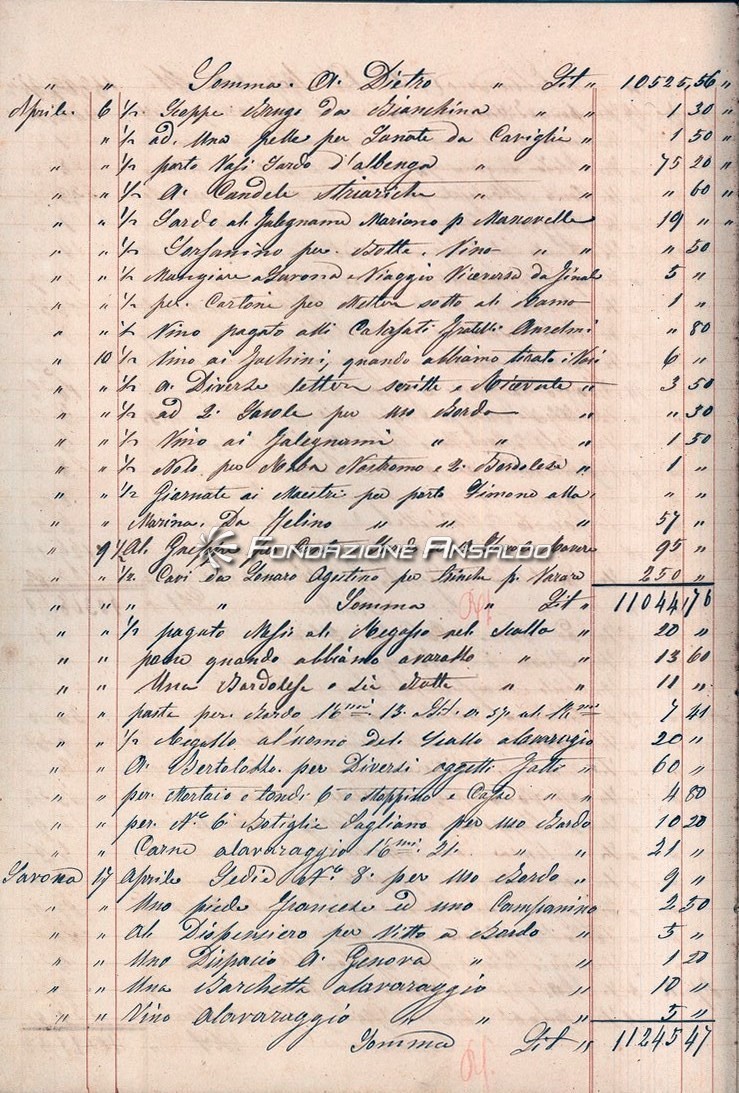 " " Somma. A. Dietro " Lit " 10525,56 "
Aprile. 6 1/2 Geppe Brugo da Bianchina " " 1 30 "
" " 1/2 ad. Una pelle per Lanate da Caviglie " 1 50 "
" " 1/2 porto Vasi Sardo d'albenga " " 75 20 "
" " 1/2 A. Candele Striariche " " " 60 "
" " 1/2 Sardo al falegname Mariano p. Manovelle 19 " "
" " 1/2 per. Botte. Vino " " " 50
" " 1/2 Mangiare a Savona e Viaggio Viceversa da Final 5 "
" " 1/2 per. Cartone per Metter sotto al Ramo 1 "
" " 1/2 Vino pagato alli Calafati Fratelli Anselmi " 80
" 10 1/2 Vino ai fachini, quando abbiamo tirato i Vasi 6 "
" " 1/2 a. Diverse lettere scritte e Ricevute " 3 50
" " 1/2 ad 2. Tavole per uso Bordo " " 30
" " 1/2 Vino ai falegnami " " " 1 50
" " 1/2 Nolo per Roba Nostromo e 2. Bordolese " 1 "
" " 1/2 Giornate ai Maestri per porto Timone alla. " "
" " Marina. Da " " " 57 "
FONDAZIONE ANSALDO
" 9 1/2 Al per 95 "
" " 1/2. Cavi da Agostino per trinche p. Varare 250 "
" " " " Somma " Lit " 11044,76
" " 1/2 pagato al Regasso nel Scallo " 20 "
" " pane quando abbiamo avaratto " " 13 60
" " Una Bordolese o sia Botte " " 11 "
" " parte per. Bordo 16 13. a Lit. 0. 57. al 7 41
" " 1/2 Regallo al'uomo del. Scallo alavaragio 20 "
" " A. Bertolotto. per Diversi oggetti fatti " 60 "
" " per. Mortaio e tondi 6 o stoppino e " " 4 80
" " per. No. 6 Botiglie per uso Bordo 10 20
" " Carne alavaraggio 16 21. " " 21 "
Savona 17 Aprile Sedie No 8. per uso Bordo " 9 "
" " Uno piede francese ed uno Campanino 2 50
" " Al Dispensiero per Vitto a Bordo " 5 "
" " Uno Dispacio A. Genova " " 1 20
" " Una Barchetta alavaraggio " 10 "
" " Vino alavaraggio " " " 5 "
Somma Lit " 11245 47